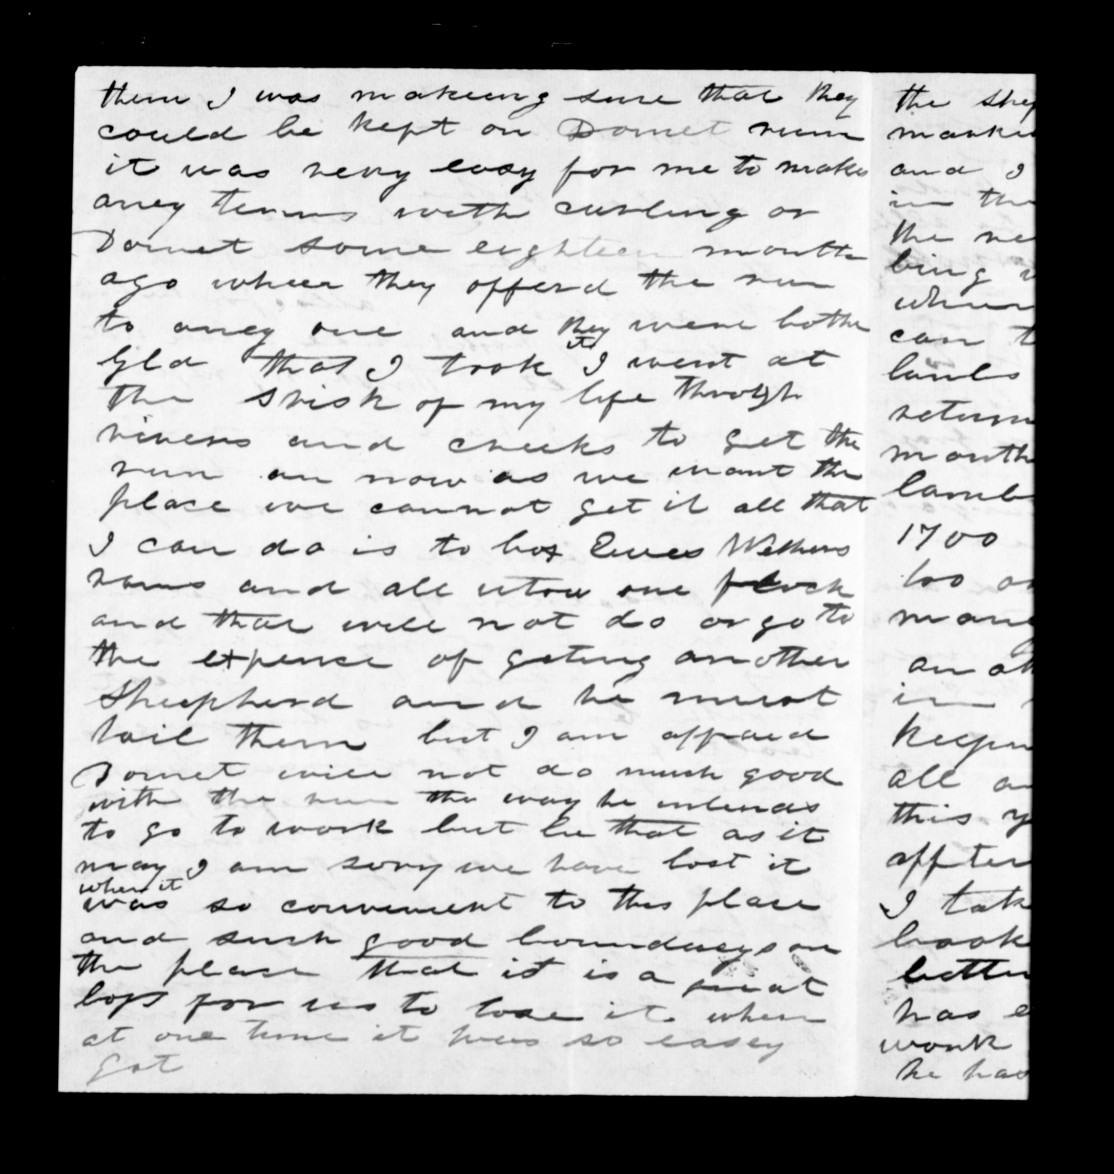 them I was makeing sure that they
could be kept on Domet run
it was very easy for me to make
aney terms with curling or
Domet some eighteen month
ago wheer they offerd the run
to aney one and they were bothe
glad that I took it I went at
the Srisk of my life through
rivers and creeks to get the
run an now as we want the
place we cannot get it all that
I can do is to box Ewes Wethers
rams and all one flock
and that will not do or go to
the expence of geting another
Shepherd and he must
tail them but I am affraed
Domet will not do much good
with the run the way he intends
to go to work but be that as it
may I am sory we have lost it
when it
was so convenient to this place
and such good boundareys on
the place that it is a great
loss for us to lose it when
at one time it was so easey
got
the
and I
in
the
being
when
can
lambs
month
1700
in
all
this
I
better
has
work
he has